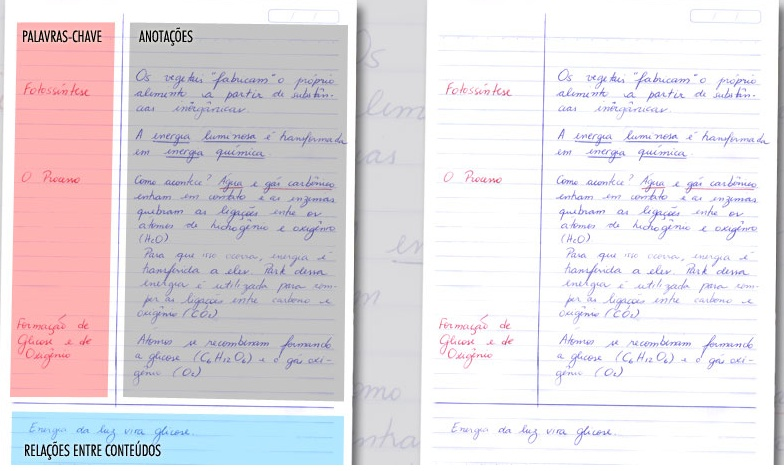 PALAVRAS-CHAVE
ANOTAÇÕES
Fotossíntese
Os vegetais "fabricam" o próprio
alimento a partir de substân-
cias inorgânicas
A energia luminosa é transformada
em energia química
O Processo
Como acontece? Água e gás carbônico
entram em contato e as enzimas
quebram as ligações entre os
átomos de hidrogênio e oxigênio
(H2O)
Para que isso ocorra, energia é
transferida a eles. Parte dessa
energia é utilizada para rom-
per as ligações entre carbono e
oxigênio (CO2)
Formação de
Glicose e de
Oxigênio
Átomos se recombinam formando
a glicose (C6H12O6) e o gás oxi-
gênio (O2)
Energia da luz vira glicose.
RELAÇÕES ENTRE CONTEÚDOS
Fotossíntese
Os vegetais "fabricam" o próprio
alimento a partir de substân-
cias inorgânicas
A energia luminosa é transformada
em energia química
O Processo
Como acontece? Água e gás carbônico
entram em contato e as enzimas
quebram as ligações entre os
átomos de hidrogênio e oxigênio
(H2O)
Para que isso ocorra, energia é
transferida a eles. Parte dessa
energia é utilizada para rom-
per as ligações entre carbono e
oxigênio (CO2)
Formação de
Glicose e de
Oxigênio
Átomos se recombinam formando
a glicose (C6H12O6) e o gás oxi-
gênio (O2)
Energia da luz vira glicose.